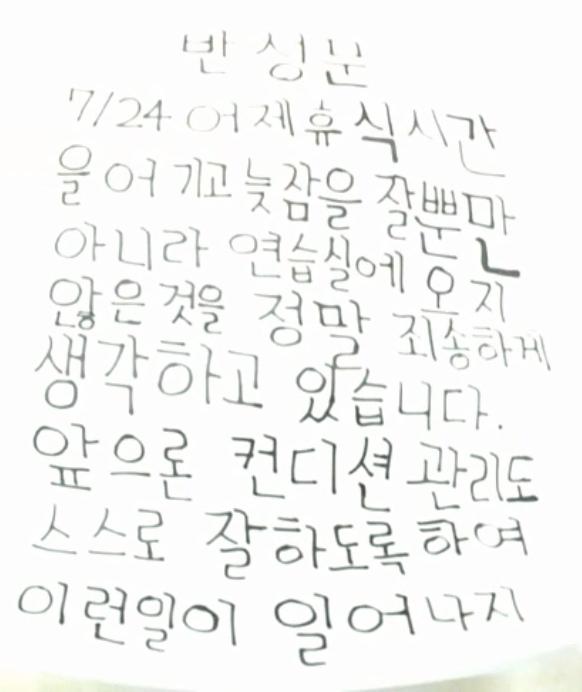 반성문
7/24 어제 휴식시간
을 어기고 늦잠을 잘뿐만
아니라 연습실에 오지
않은것을 정말 죄송하게
생각하고 있습니다.
앞으론 컨디션 관리도
스스로 잘하도록 하여
이런일이 일어나지